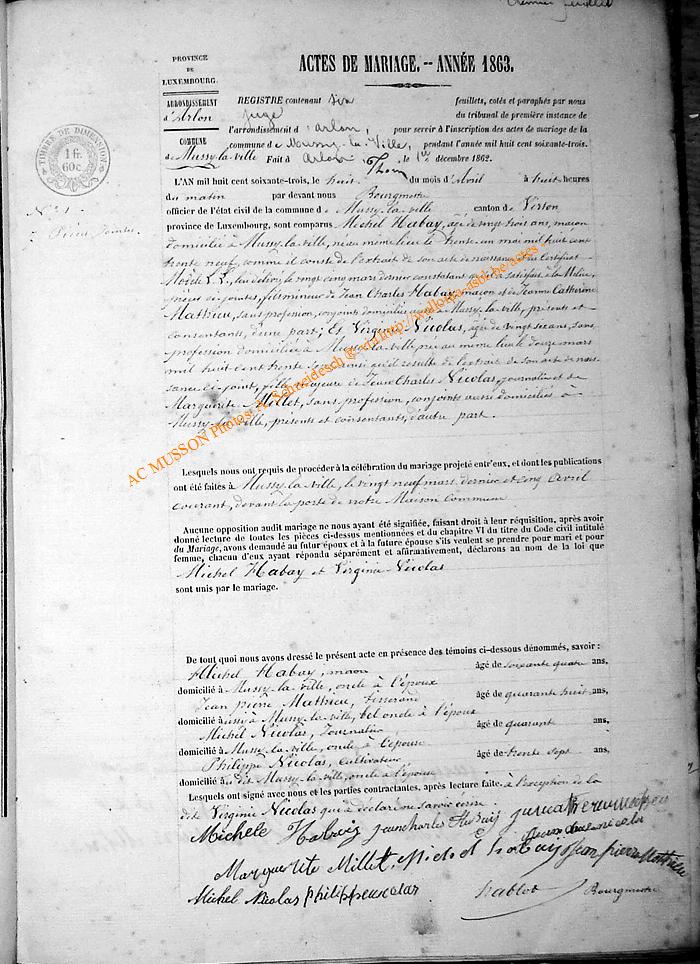 Premier feuillet
PROVINCE
DE
LUXEMBOURG.
ARRONDISSEMENT
d'Arlon
COMMUNE
de Mussy-la-ville
ACTES DE MARIAGE. -- ANNÉE 1863.
REGISTRE contenant six feuillets, cotés et paraphés par nous
juge du tribunal de première instance de
l'arrondissement d'Arlon, pour servir à l'inscription des actes de mariage de la
commune de Mussy-la-Ville, pendant l'année mil huit cent soixante-trois.
Fait à Arlon, le 1er décembre 1862.
TIMBRE DE DIMENSION
1 fr.
60 c.
N° 1
7 Pièces jointes
L'AN mil huit cent soixante-trois, le huit du mois d'Avril à huit heures
du matin par devant nous Bourgmestre
officier de l'état civil de la commune de Mussy-la-ville canton de Virton
province de Luxembourg, sont comparus Michel Habay, âgé de vingt trois ans, maçon
domicilié à Mussy-la-ville, né au même lieu le trente un mai mil huit cent
trente neuf, comme il conste de l'extrait de son acte de naissance, certificat
le vingt cinq mars dernier constatant qu'il a satisfait à la Milice,
pièces ci-jointes, fils mineur de Jean Charles Habay, maçon et de Jeanne Catherine
Mathieu, sans profession, conjoints domiciliés à Mussy-la-ville, présents et
consentants, d'une part; Et Virginie Nicolas, âgée de vingt six ans, sans
profession domiciliée à Mussy-la-ville née au même lieu le douze mars
mil huit cent trente sept ainsi qu'il résulte de l'extrait de son acte de nais-
sance ci-joint, fille majeure de Jean Charles Nicolas, journalier et de
Marguerite Millet, sans profession, conjoints aussi domiciliés à
Mussy-la-ville, présents et consentants, d'autre part.
AC MUSSON Photos: A. Schneidesch @
http://wallonia-asbl.be/actes
Lesquels nous ont requis de procéder à la célébration du mariage projeté entr'eux, et dont les publications
ont été faites à Mussy-la-ville, le vingt neuf mars dernier et cinq avril
courant, devant la porte de notre Maison Commune
Aucune opposition audit mariage ne nous ayant été signifiée, faisant droit à leur réquisition, après avoir
donné lecture de toutes les pièces ci-dessus mentionnées et du chapitre VI du titre du Code civil intitulé
du Mariage, avons demandé au futur époux et à la future épouse s'ils veulent se prendre pour mari et pour
femme, chacun d'eux ayant répondu séparément et affirmativement, déclarons au nom de la loi que
Michel Habay et Virginie Nicolas
sont unis par le mariage.
De tout quoi nous avons dressé le présent acte en présence des témoins ci-dessous dénommés, savoir :
Michel Habay, maçon âgé de soixante quatre ans,
domicilié à Mussy-la-ville, oncle à l'époux
Jean pierre Mathieu, Tisserand âgé de quarante huit ans,
domicilié aussi à Mussy-la-ville, bel oncle à l'époux
Michel Nicolas, Journalier âgé de quarante ans,
domicilié à Mussy-la-ville, oncle à l'épouse
Philippe Nicolas, Cultivateur âgé de trente sept ans,
domicilié au dit Mussy-la-ville, oncle à l'épouse
Lesquels ont signé avec nous et les parties contractantes, après lecture faite. à l'exception de la
dite Virginie Nicolas qui a déclaré ne savoir écrire
Michele Habaiz jean charles
Marguerite Millet Jean pierre Mathieu
Michel Nicolas philippe nicolas Bourgmestre